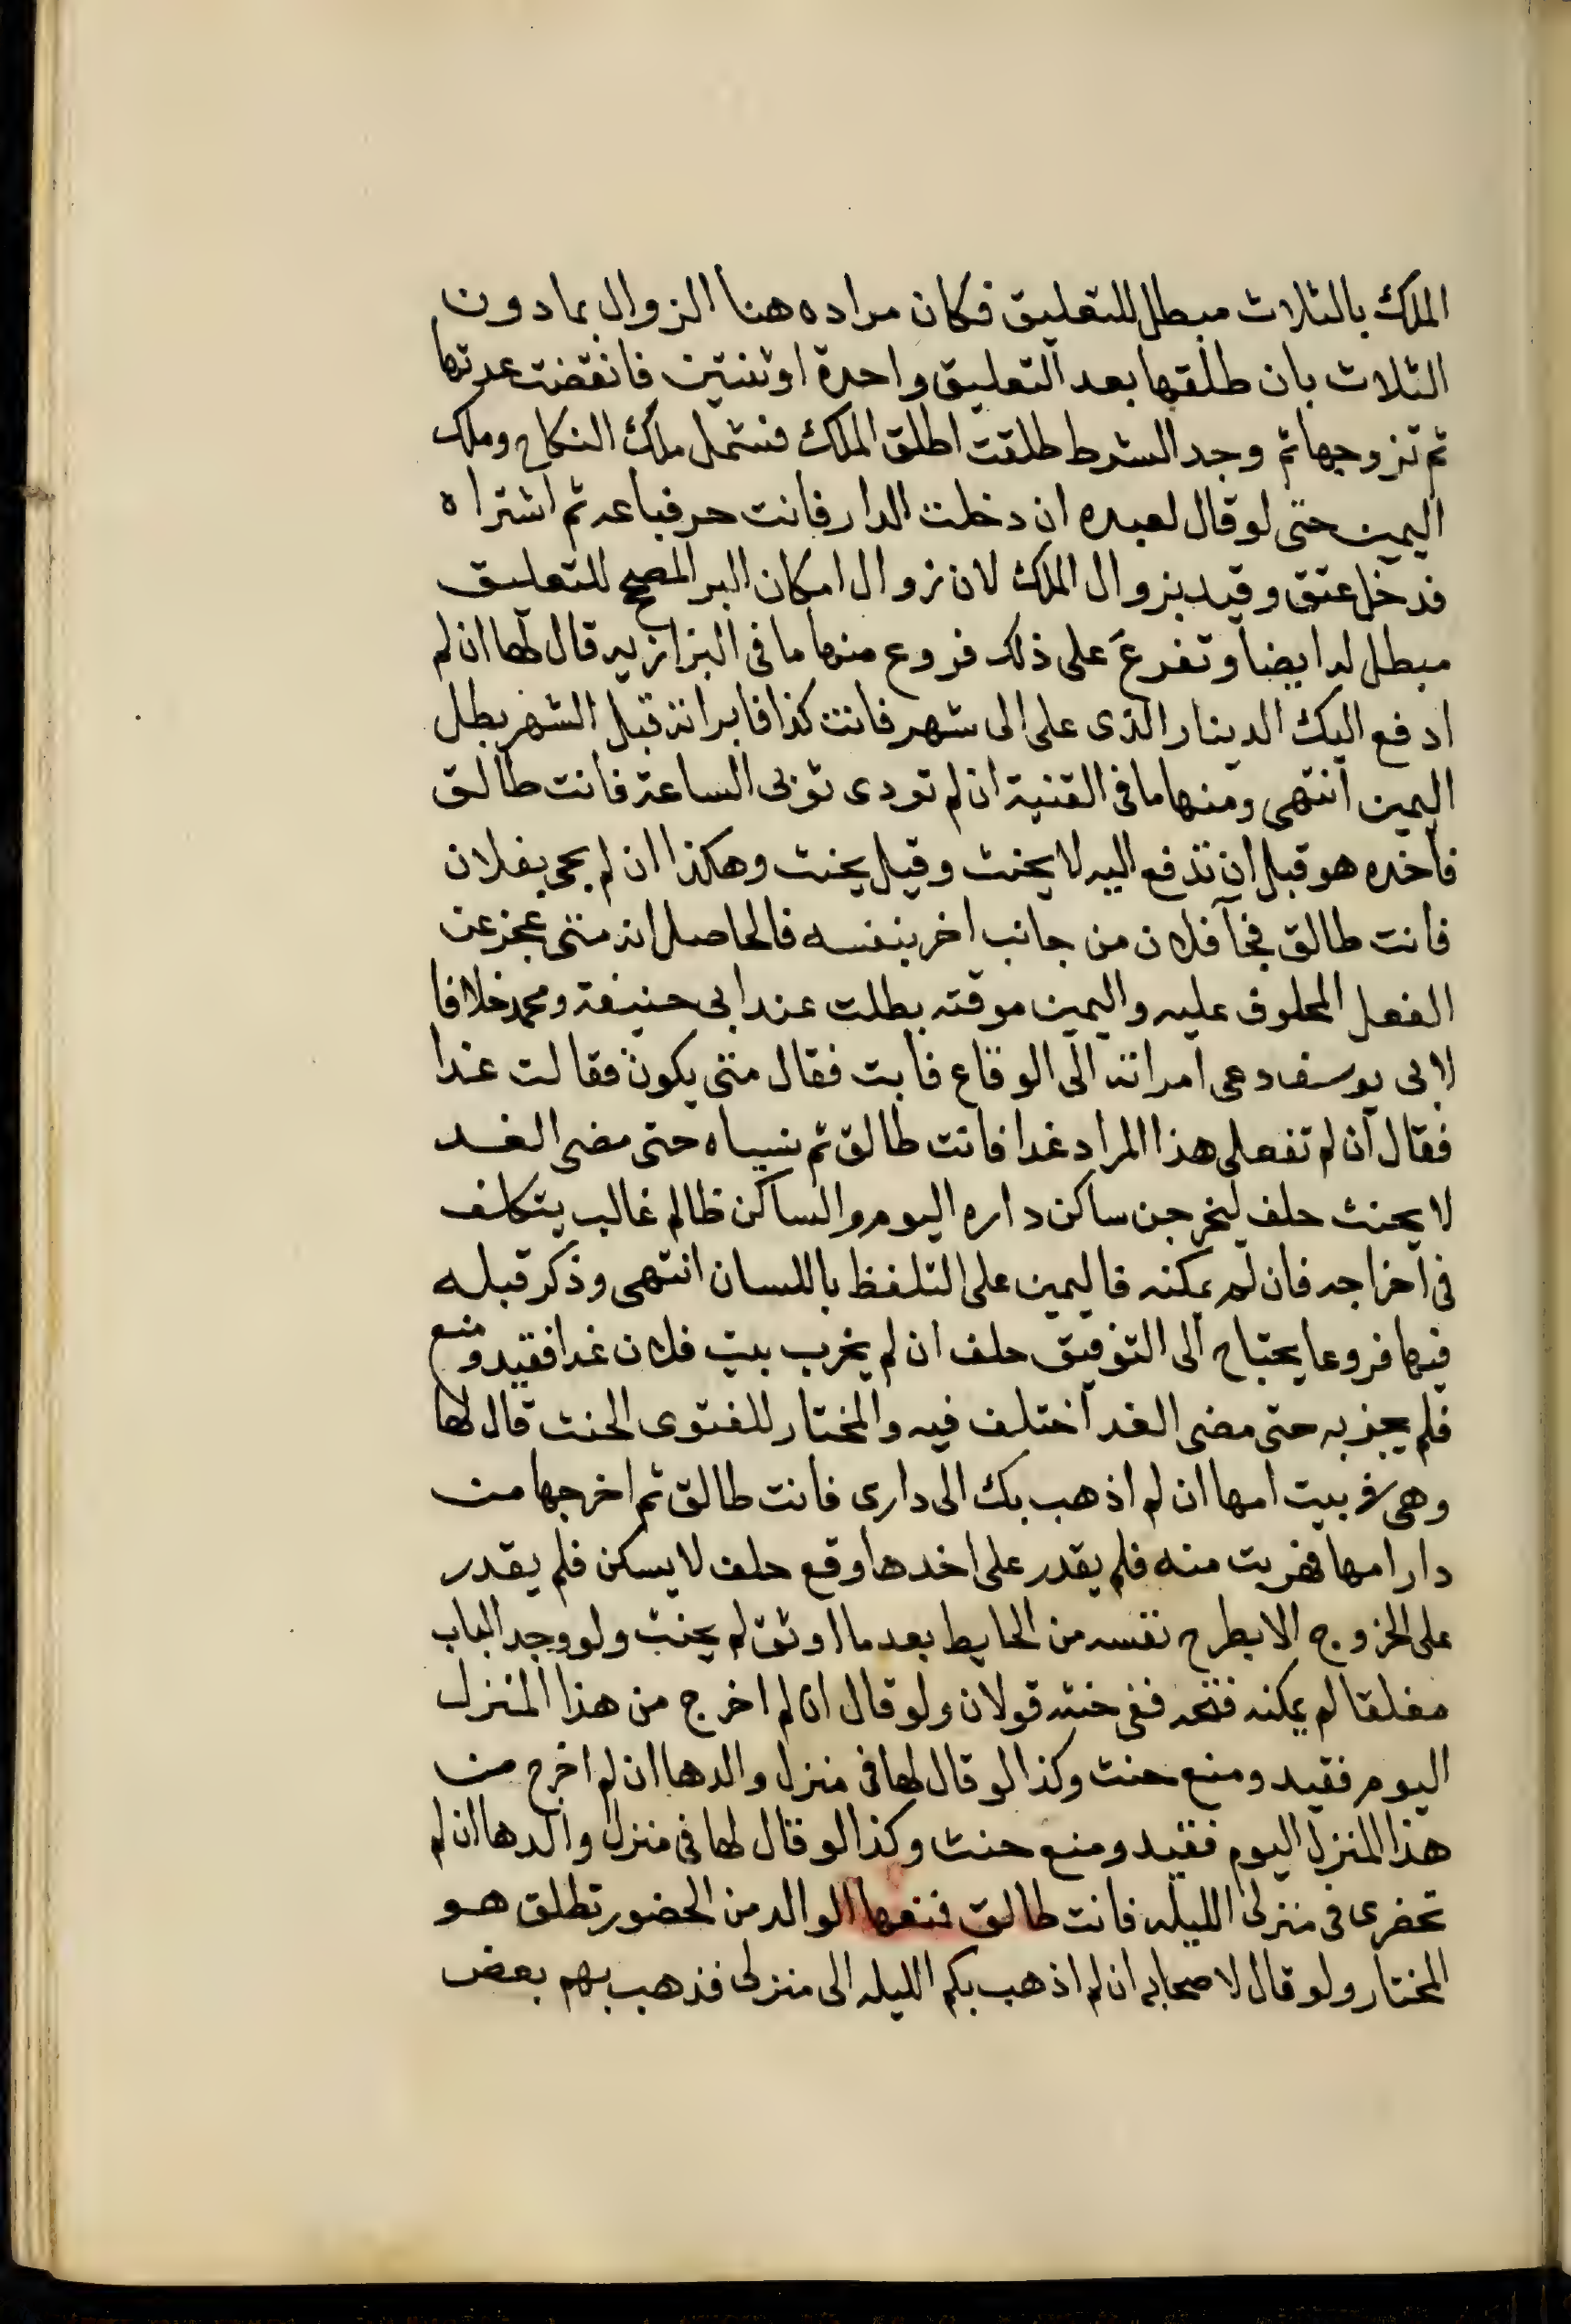 الملك بالثلاث مبطل للتعليق فكان مراده هنا الزوال بمادون
الثلاث بان طلقها بعد التعليق واحدة او ثنتين فانقضت عدتها
ثم تزوجها ثم وجد الشرط طلقت اطلق الملك فشمل ملك النكاح وملك
اليمين حتى لو قال لعبده ان دخلت الدار فانت حر فباعه ثم اشتراه
فدخل عتق وقيد بزوال الملك لان زوال امكان البر المصحح للتعليق
مبطل له ايضا وتفرع على ذلك فروع منها ما فى البزازيه قال لها ان لم
ادفع اليك الدينار الذى على الى شهر فانت كذا فابراته قبل الشهر بطل
اليمين انتهى ومنها ما فى القنية ان لم تودى ثوبى الساعة فانت طالق
فاخذه هو قبل ان تدفع اليه لا يحنث وقيل يحنث وهكذا ان لم يجى بفلان
فانت طالق فجآ فلان من جانب اخر بنفسه فالحاصل انه متى عجز عن
الفعل المحلوف عليه واليمين موقته بطلت عند ابى حنيفة ومحمد خلافا
لابى يوسف دعى امراته الى الوقاع فابت فقال متى يكون فقالت غدا
فقال ان لم تفعلى هذا المراد غدا فانت طالق ثم نسياه حتى مضى الغد
لا يحنث حلف ليخرجن ساكن داره اليوم والساكن ظالم غالب يتكلف
فى اخراجه فان لم يمكنه فاليمين على التلفظ باللسان انتهى وذكر قبله
فيها فروعا يحتاج الى التوفيق حلف ان لم يخرب بيت فلان غدا فقيد ومنع
فلم يجز به حتى مضى الغد اختلف فيه والمختار للفتوى الحنث قال لها
وهى فى بيت امها ان لم اذهب بك الى دارى فانت طالق ثم اخرجها من
دار امها فهربت منه فلم يقدر على اخدها وقع حلف لا يسكن فلم يقدر
على الخروج الا بطرح نفسه من الحايط بعد ما اوثق لم يحنث ولو وجد الباب
مغلقا لم يمكنه فتحه ففى حنثه قولان ولو قال ان لم اخرج من هذا المنزل
اليوم فقيد ومنع حنث وكذا لو قال لها فى منزل والدها ان لم اخرج من
هذا المنزل اليوم فقيد ومنع حنث وكذا لو قال لها فى منزل والدها ان لم
تحضرى فى منزلى الليله فانت طالق فمنعها الوالد من الحضور تطلق هو
المختار ولو قال لاصحابه ان لم اذهب بكم الليله الى منزلى فذهب بهم بعض